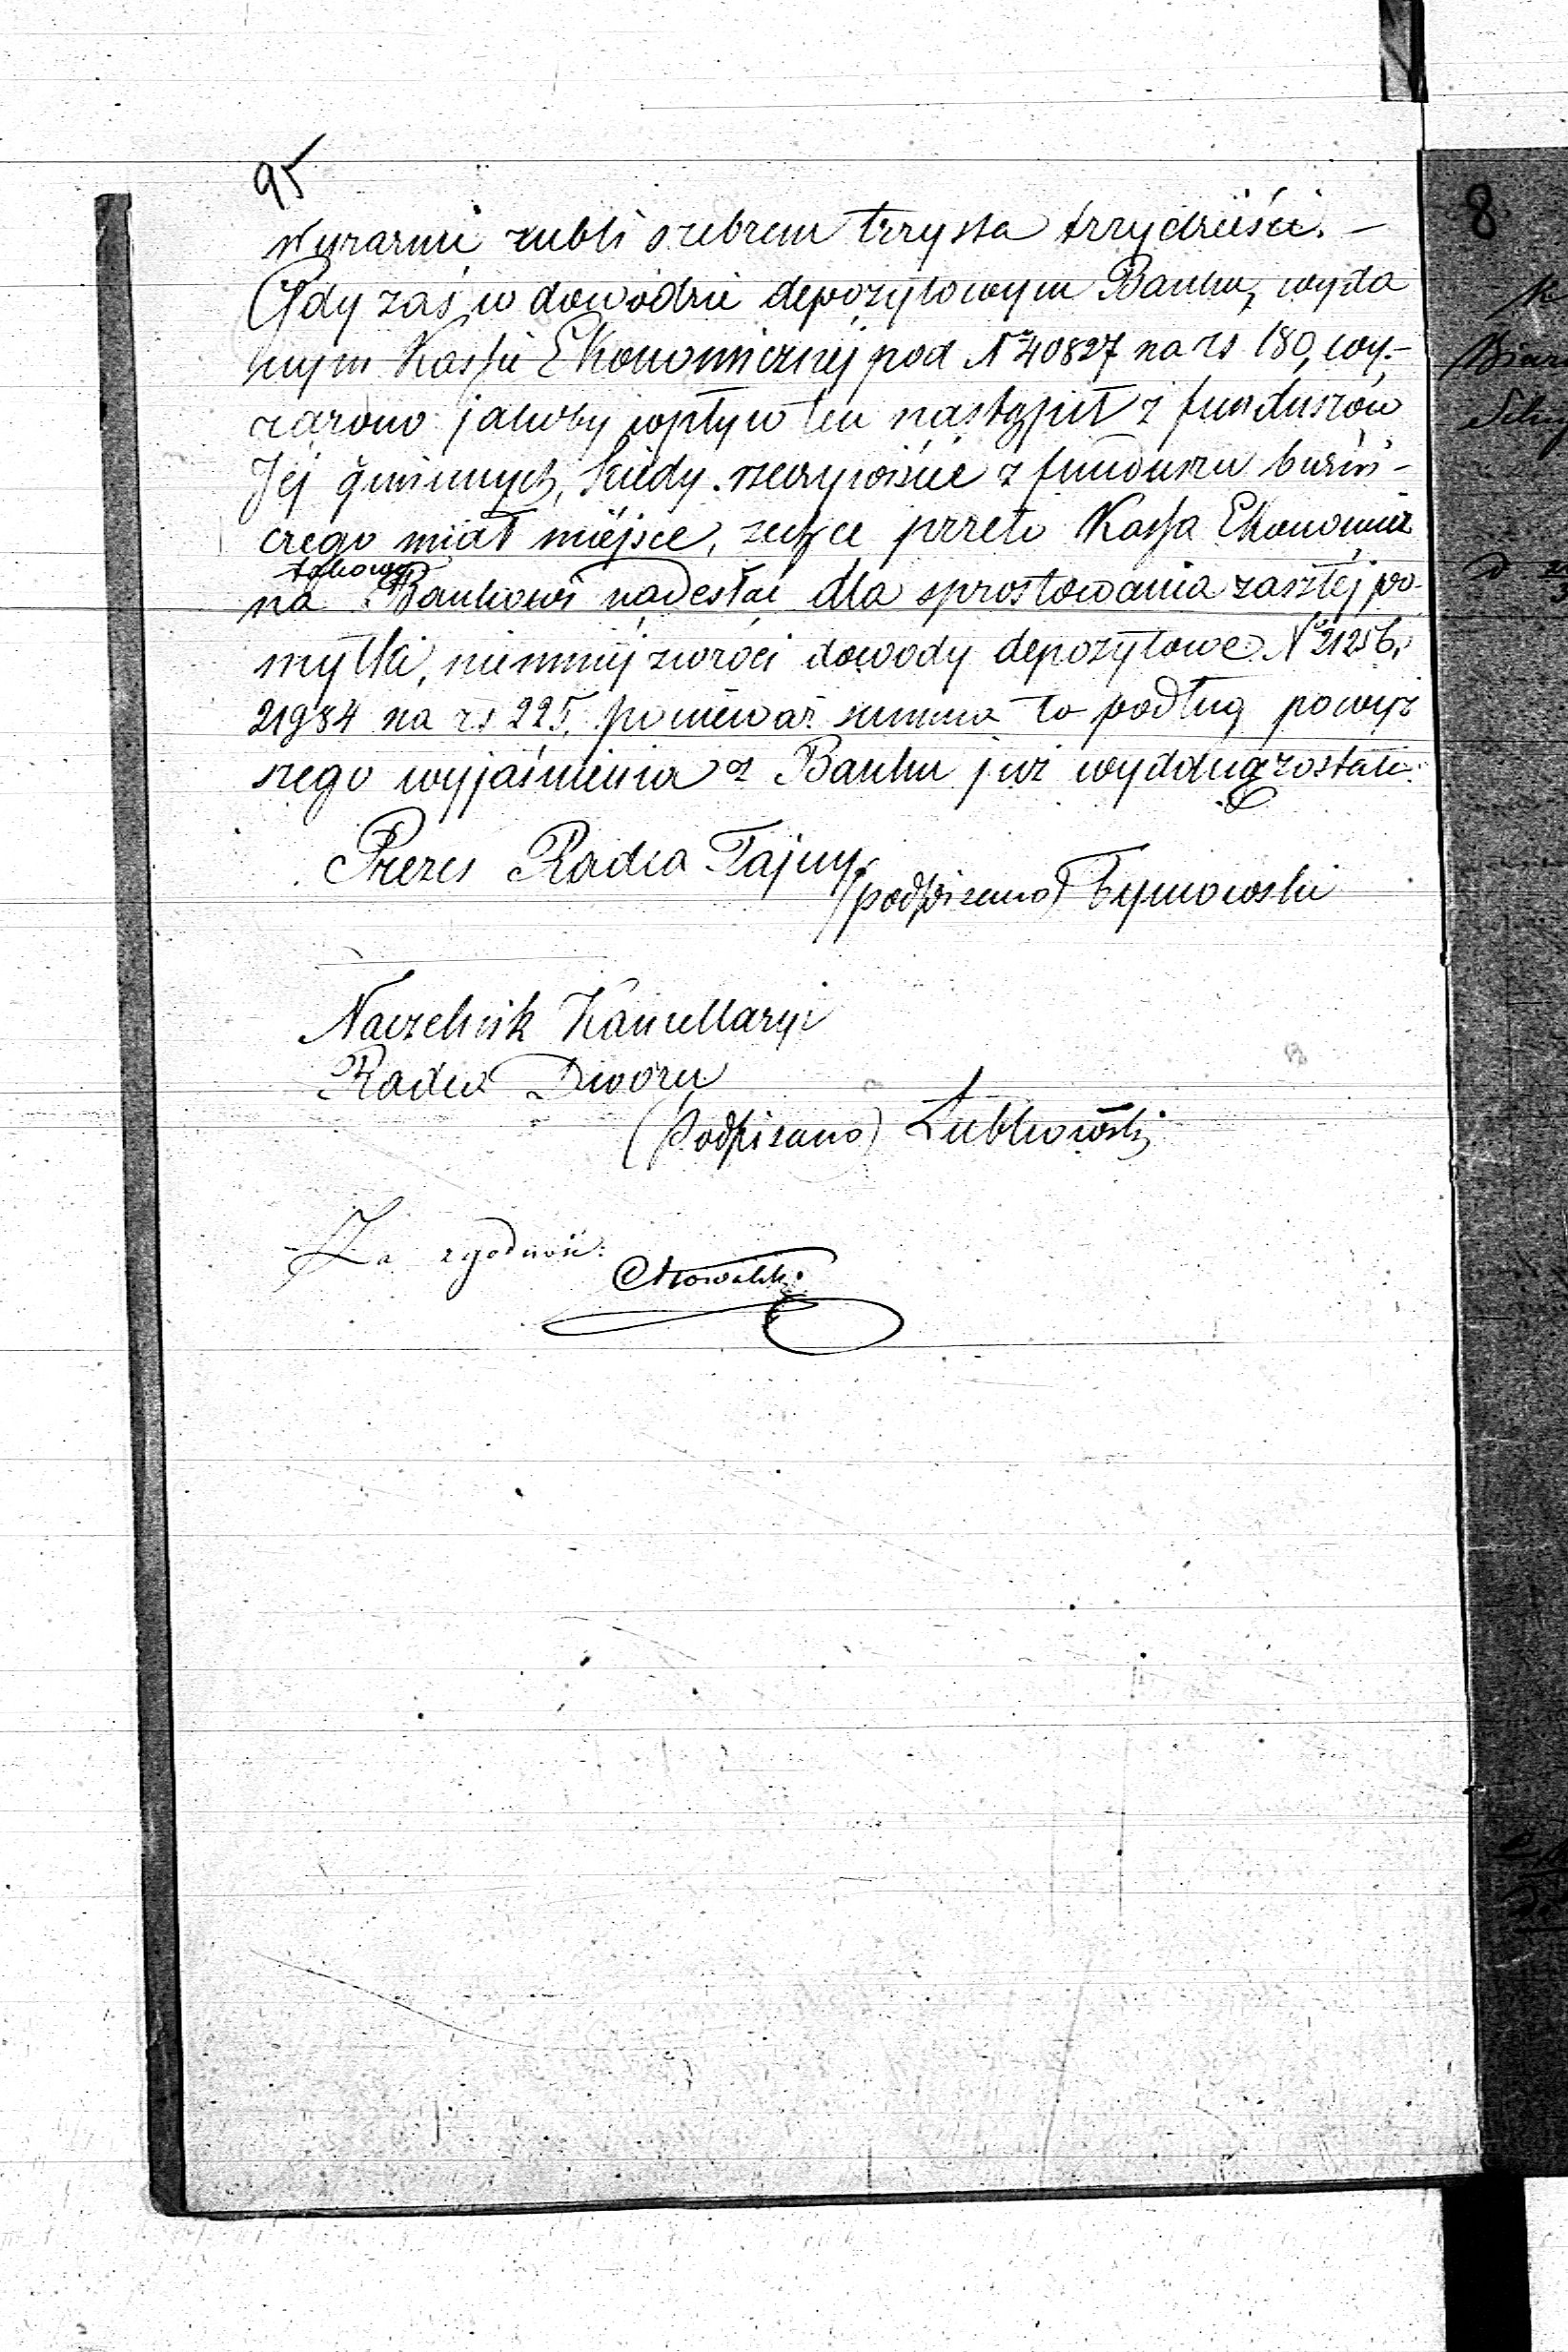 95
w yrazmie rubli srebrem trzysta trzydzieści. –
Gdy zaś w dowodzie depozytowym Banku, wyda
nym Kassie Ekonomicznej pod № 40827 na rs 180, wy-
rażono jakoby wpływ ten nastąpił z funduszów
Jej gminnych, kiedy rzeczywiście z funduszu buźni-
czego miał miejsce, zechce przeto Kassa Ekonomicz
takowy
na Bankowi nadesłać dla sprostowania zaszłej po-
myłki, niemniej zwróci dowody depozytowe № 21256,
21984 na rs 225, ponieważ summa ta podług powyż
szego wyjaśnienia z Banku już wydaną została.
Prezes Radca Tajny
(podpisano) Tymowski
Naczelnik Kancellaryi
Radca Dworu
(Podpisano) Lubkowski
Za zgodność:
Nowalski
8